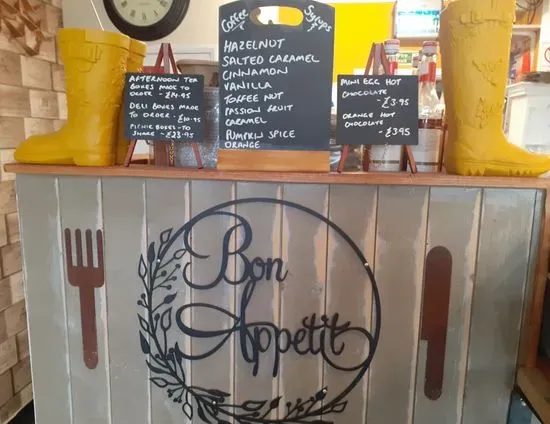 AFTERNOON TEA
BOXES MADE TO
ORDER - £14.95
DELI BOXES MADE
TO ORDER - £10.95
PICNIC BOXES - TO
SHARE -
Coffee Syrups
HAZELNUT
SALTED CARAMEL
CINNAMON
VANILLA
TOFFEE NUT
PASSION FRUIT
CARAMEL
PUMPKIN SPICE
ORANGE
MINI EGG HOT
CHOCOLATE
- £3.95
ORANGE HOT
CHOCOLATE
- £3.95
Bon
Appetit